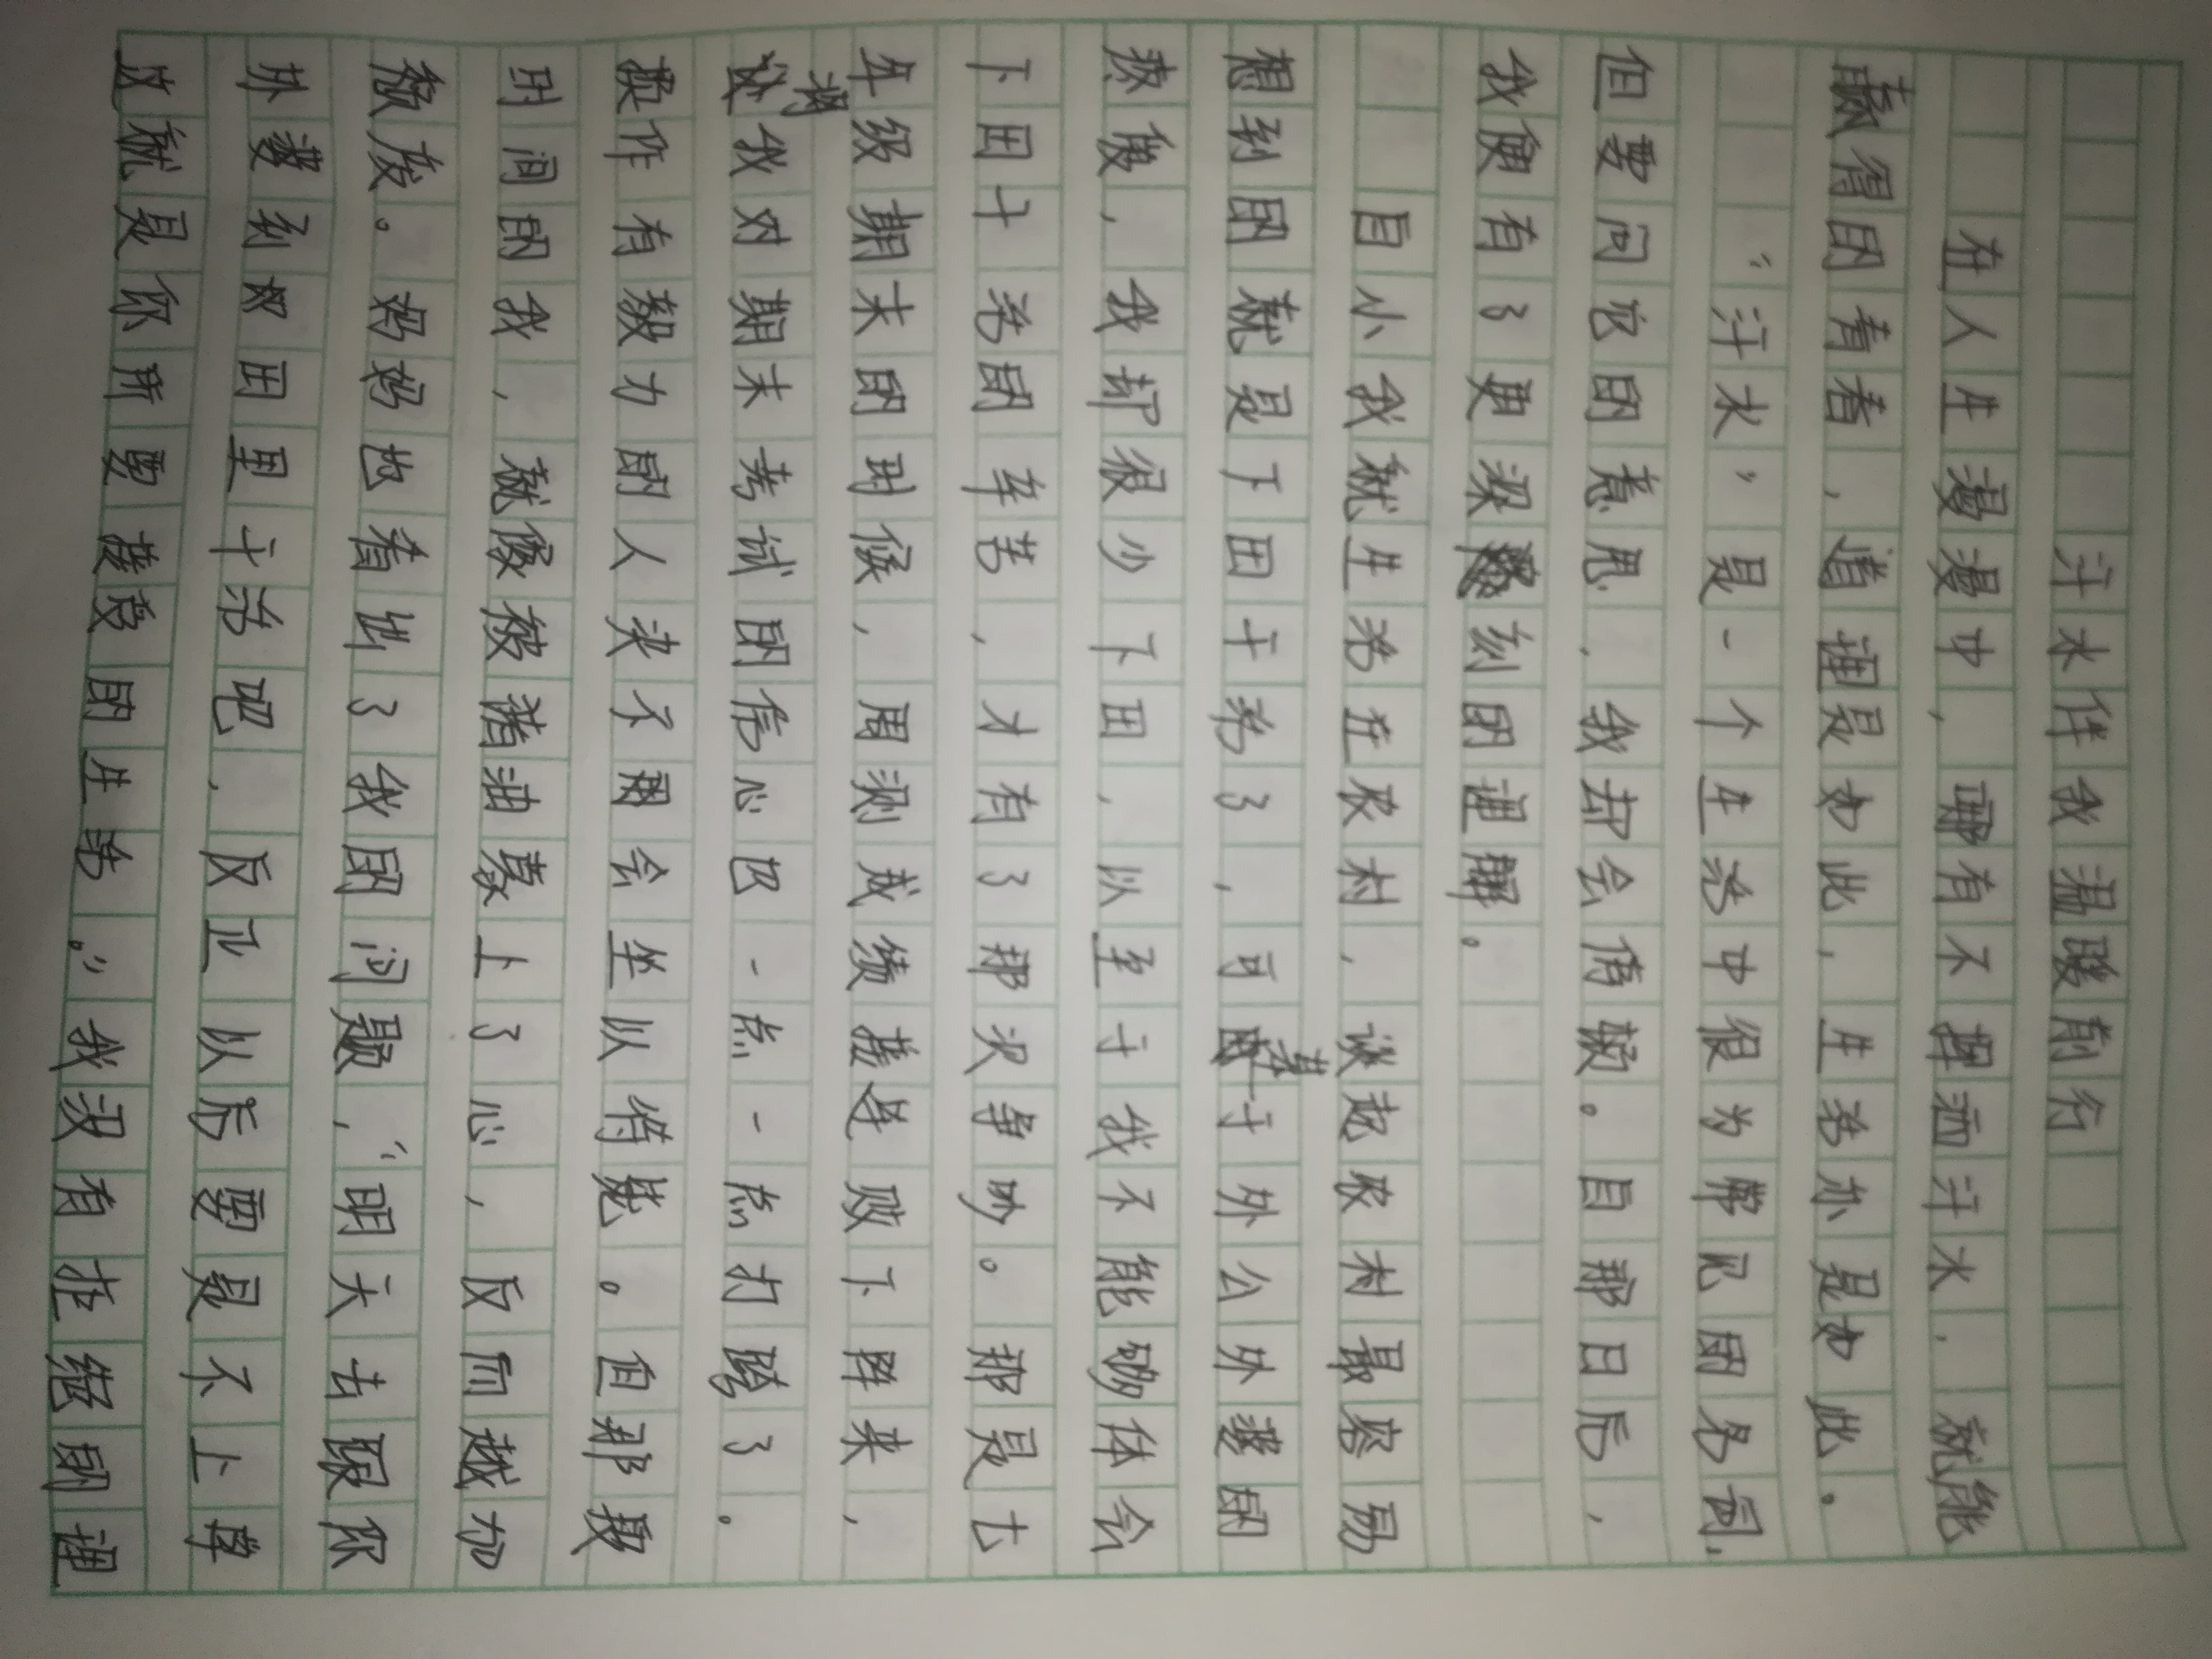 汗水伴我温暖前行
在人生漫漫中，哪有不挥洒汗水，就能
赢得的青春，道理是如此，生活亦是如此。
“汗水”是一个生活中很为常见的名词，
但要问它的意思，我却会倩赖。自那日后，
我便有了更深刻的理解。
自小我就生活在农村，谈起农村最容易
想到的就是下田干活了，可基于外公外婆的
疼爱，我却很少下田，以至于我不能够体会
下田干活的辛苦，才有了那次争吵。那是七
年级期末的时候，周测成绩接连败下阵来，
将我对期末考试的信心也一点一点打垮了。
换作有毅力的人决不会坐以待毙。但那段
时间的我，就像被猪油蒙上了心，反而越加
颓废。妈妈也看出了我的问题，“明天去跟你
外婆到农田里干活吧，反正以后要是不上学
这就是你所要接受的生活。”我没有拒绝的理